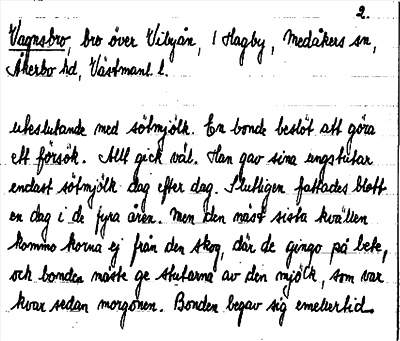 2.
Vagnsbro, bro över Vibyån, i Hagby, Medåkers sn,
Åkerbo hd, Västmanl. l.
uteslutande med sötmjölk. En bonde beslöt att göra
ett försök. Allt gick väl. Han gav sina ungstutar
endast sötmjölk dag efter dag. Slutligen fattades blott
en dag i de fyra åren. Men den näst sista kvällen
kommo korna ej från den skog, där de gingo på bete,
och bonden måste ge stutarna av den mjölk, som var
kvar sedan morgonen. Bonden begav sig emellertid